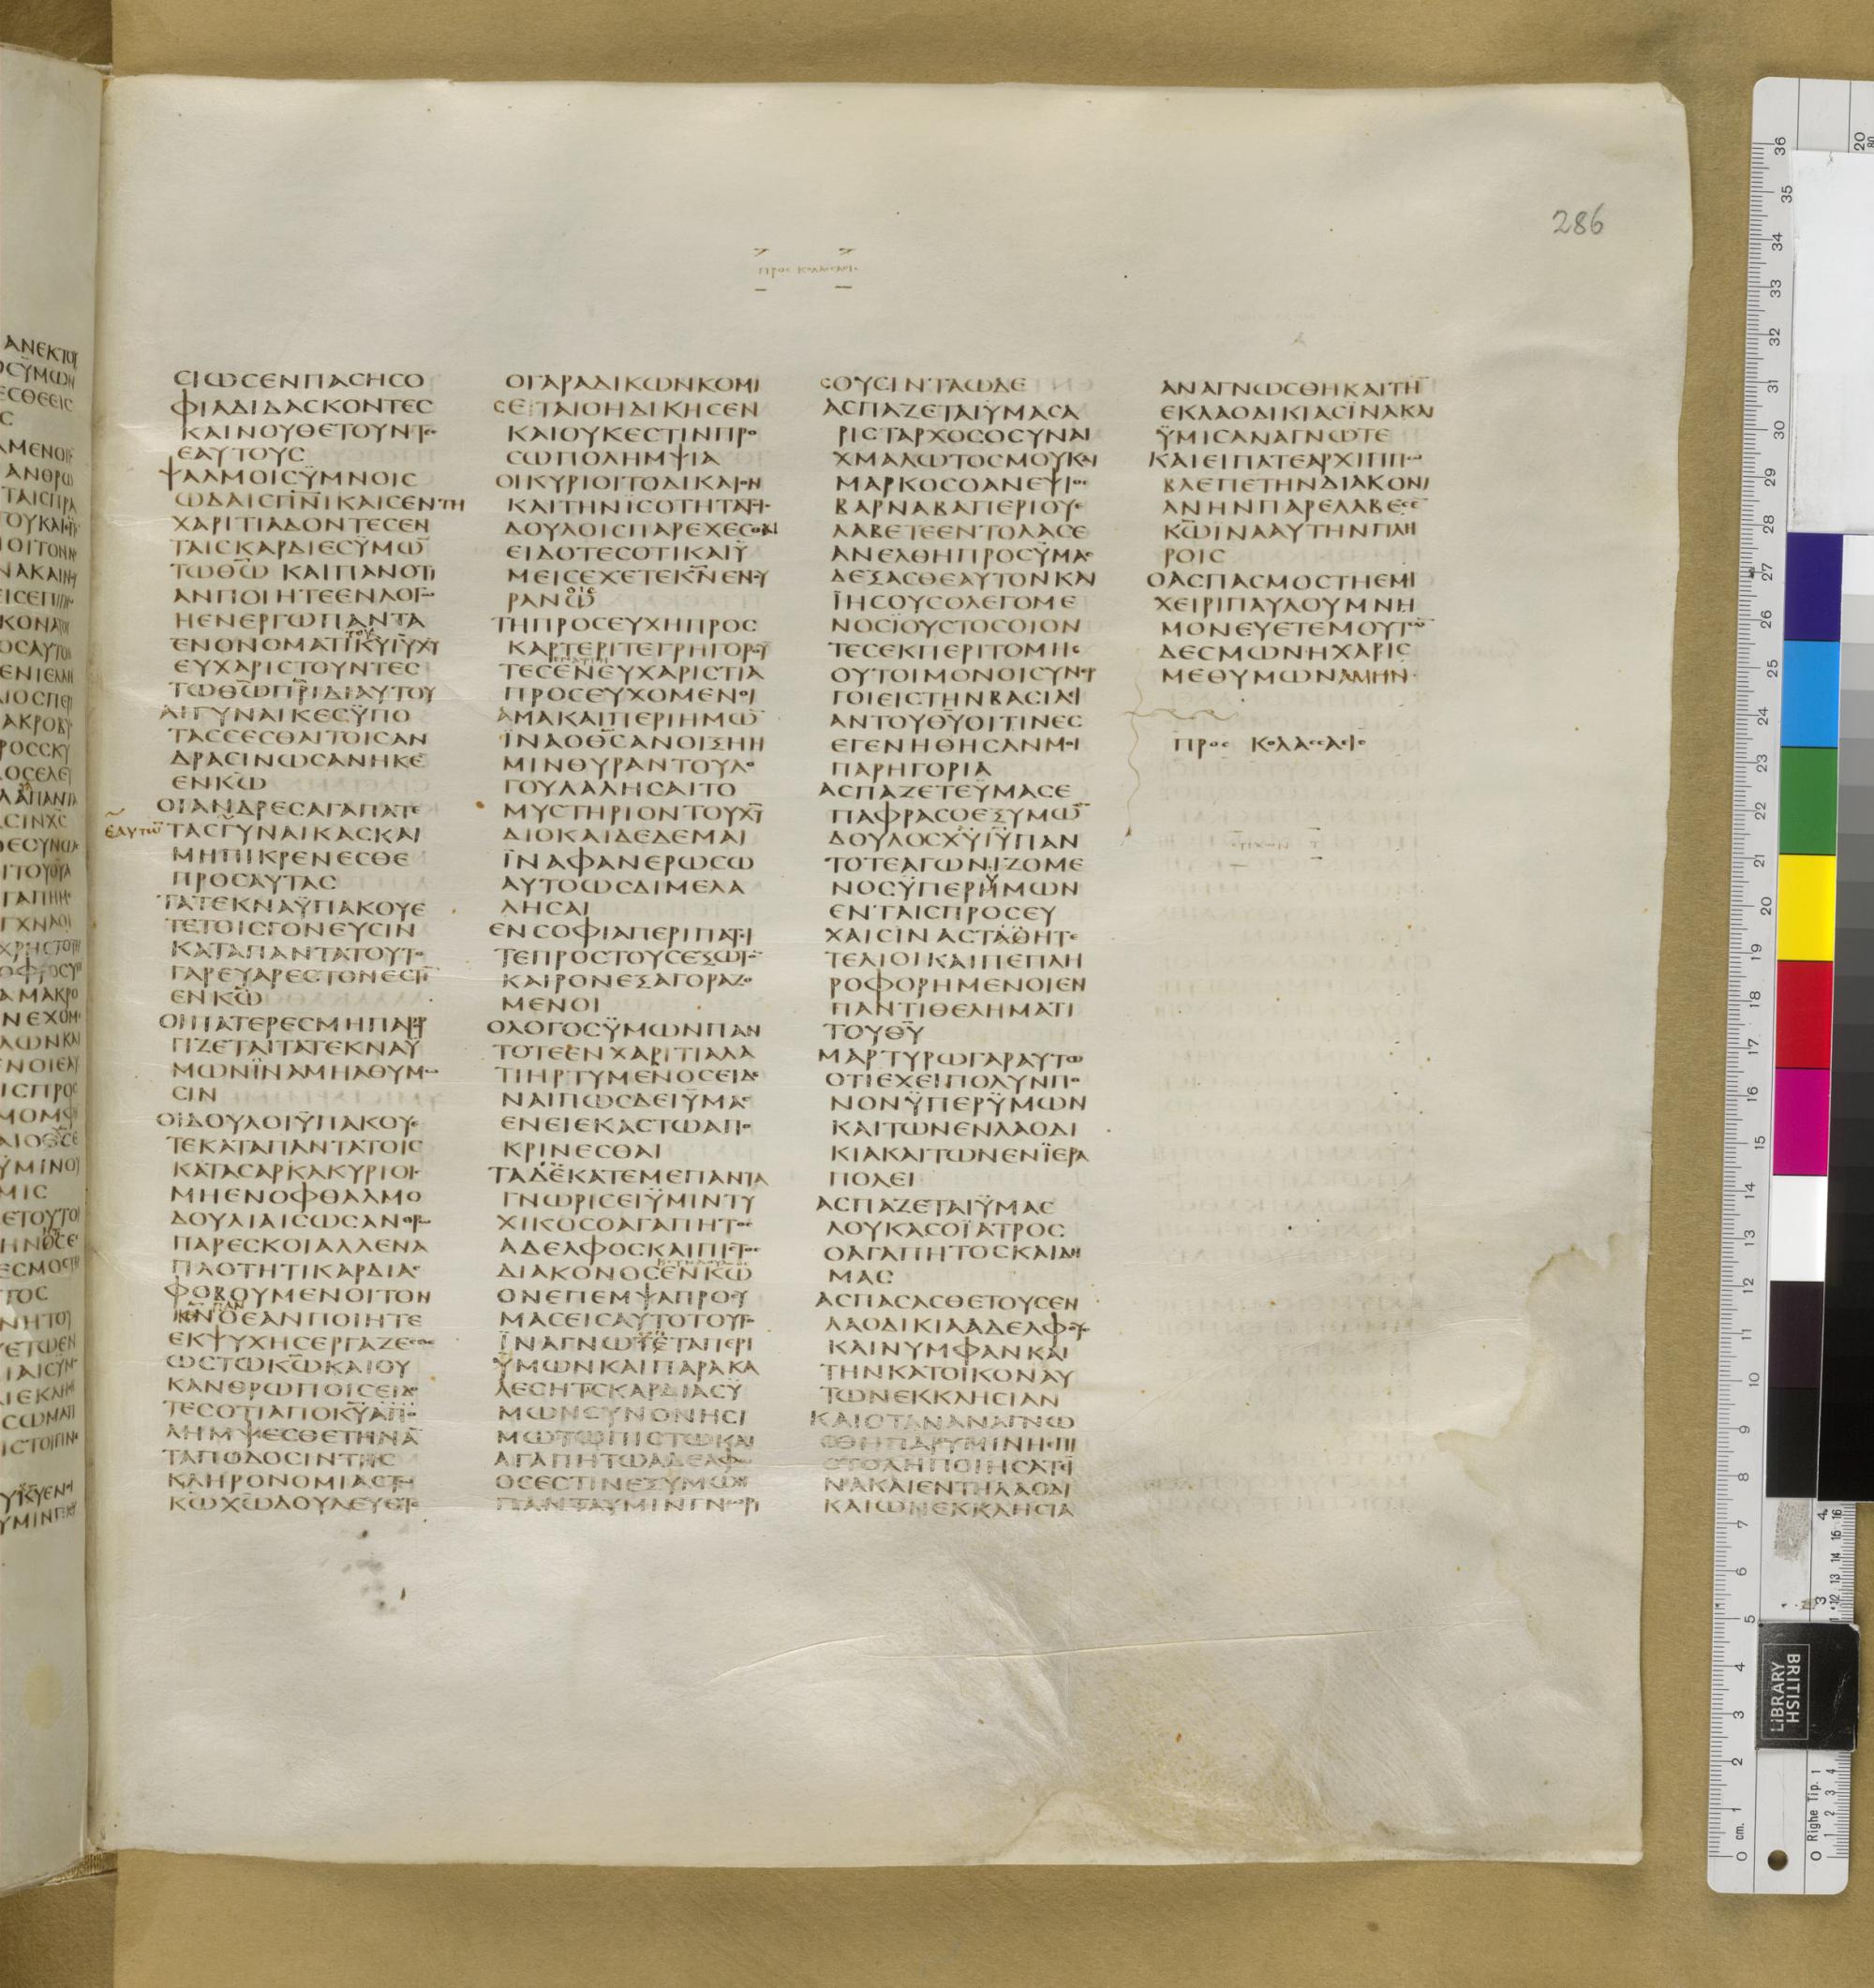 286
Προς Κολασσαις
ϹΙΩϹΕΝΠΑϹΗϹΟ
ΦΙΑΔΙΔΑϹΚΟΝΤΕϹ
ΚΑΙΝΟΥΘΕΤΟΥΝΤΕϹ
ΕΑΥΤΟΥϹ
ΨΑΛΜΟΙϹΫΜΝΟΙϹ
ΩΔΑΙϹΠΝΙΚΑΙϹΕΝΤΗ
ΧΑΡΙΤΙΑΔΟΝΤΕϹΕΝ
ΤΑΙϹΚΑΡΔΙΕϹΫΜΩ̅
ΤΩΘ̅Ω̅ ΚΑΙΠΑΝΟΤΙ
ΑΝΠΟΙΗΤΕΕΝΛΟΓΩ
ΗΕΝΕΡΓΩΠΑΝΤΑ
ΕΝΟΝΟΜΑΤΙΚ̅Υ̅Ι̅Υ̅Χ̅Υ̅
ΕΥΧΑΡΙϹΤΟΥΝΤΕϹ
ΤΩΘ̅Ω̅Π̅Ρ̅Ι̅ΔΙΑΥΤΟΥ
ΑΙΓΥΝΑΙΚΕϹΫΠΟ
ΤΑϹϹΕϹΘΑΙΤΟΙϹΑΝ
ΔΡΑϹΙΝΩϹΑΝΗΚΕ̅
ΕΝΚ̅Ω̅
ΟΙΑΝΔΡΕϹΑΓΑΠΑΤΕ
ΕΑΥΤΩ̅
ΤΑϹΓΥΝΑΙΚΑϹΚΑΙ
ΜΗΠΙΚΡΕΝΕϹΘΕ
ΠΡΟϹΑΥΤΑϹ
ΤΑΤΕΚΝΑΫΠΑΚΟΥΕ
ΤΕΤΟΙϹΓΟΝΕΥϹΙΝ
ΚΑΤΑΠΑΝΤΑΤΟΥΤΟ
ΓΑΡΕΥΑΡΕϹΤΟΝΕϹΤΙ̅
ΕΝΚ̅Ω̅
ΟΙΠΑΤΕΡΕϹΜΗΠΑΡΟΡ
ΓΙΖΕΤΑΙΤΑΤΕΚΝΑΫ
ΜΩΝΪΝΑΜΗΑΘΥΜΩ
ϹΙΝ
ΟΙΔΟΥΛΟΙΫΠΑΚΟΥΕ
ΤΕΚΑΤΑΠΑΝΤΑΤΟΙϹ
ΚΑΤΑϹΑΡΚΑΚΥΡΙΟΙϹ
ΜΗΕΝΟΦΘΑΛΜΟ
ΔΟΥΛΙΑΙϹΩϹΑΝΘΡΩ
ΠΑΡΕϹΚΟΙΑΛΛΕΝΑ
ΠΛΟΤΗΤΙΚΑΡΔΙΑϹ
ΦΟΒΟΥΜΕΝΟΙΤΟΝ
Κ̅Ν̅ΟΕΑΝΠΟΙΗΤΕ
ΕΚΨΥΧΗϹΕΡΓΑΖΕϹΘΕ
ΩϹΤΩΚ̅Ω̅ΚΑΙΟΥ
ΚΑΝΘΡΩΠΟΙϹΕΙΔΟ
ΤΕϹΟΤΙΑΠΟΚ̅Υ̅ΑΠΟ
ΛΗΜΨΕϹΘΕΤΗΝΑ̅
ΤΑΠΟΔΟϹΙΝΤΗϹ
ΚΛΗΡΟΝΟΜΙΑϹΤΩ
Κ̅Ω̅Χ̅Ω̅ΔΟΥΛΕΥΕΤΕ
ΟΓΑΡΑΔΙΚΩΝΚΟΜΙ
ϹΕΤΑΙΟΗΔΙΚΗϹΕΝ
ΚΑΙΟΥΚΕϹΤΙΝΠΡΟ
ϹΩΠΟΛΗΜΨΙΑ
ΟΙΚΥΡΙΟΙΤΟΔΙΚΑΙΟΝ
ΚΑΙΤΗΝΪϹΟΤΗΤΑΤΟΙϹ
ΔΟΥΛΟΙϹΠΑΡΕΧΕϹΘΑΙ
ΕΙΔΟΤΕϹΟΤΙΚΑΙΫ
ΜΕΙϹΕΧΕΤΕΚ̅Ν̅ΕΝΟΥ
ΡΑΝΩ̅
ΤΗΠΡΟϹΕΥΧΗΠΡΟϹ
ΚΑΡΤΕΡΙΤΕΓΡΗΓΟΡΟΥ̅
ΤΕϹΕΝΕΥΧΑΡΙϹΤΙΑ
ΠΡΟϹΕΥΧΟΜΕΝΟΙ
ΑΜΑΚΑΙΠΕΡΙΗΜΩ̅
ΪΝΑΟΘ̅Ϲ̅ΑΝΟΙΞΗΗ
ΜΙΝΘΥΡΑΝΤΟΥΛΟ
ΓΟΥΛΑΛΗϹΑΙΤΟ
ΜΥϹΤΗΡΙΟΝΤΟΥΧ̅Υ̅
ΔΙΟΚΑΙΔΕΔΕΜΑΙ
ΪΝΑΦΑΝΕΡΩϹΩ
ΑΥΤΟΩϹΔΙΜΕΛΑ
ΛΗϹΑΙ
ΕΝϹΟΦΙΑΠΕΡΙΠΑΤΙ
ΤΕΠΡΟϹΤΟΥϹΕΞΩΤΟ̅
ΚΑΙΡΟΝΕΞΑΓΟΡΑΖΟ
ΜΕΝΟΙ
ΟΛΟΓΟϹΫΜΩΝΠΑΝ
ΤΟΤΕΕΝΧΑΡΙΤΙΑΛΑ
ΤΙΗΡΤΥΜΕΝΟϹΕΙΔΕ
ΝΑΙΠΩϹΔΕΙΫΜΑϹ
ΕΝΕΙΕΚΑϹΤΩΑΠΟ
ΚΡΙΝΕϹΘΑΙ
ΤΑΔΕΚΑΤΕΜΕΠΑΝΤΑ
ΓΝΩΡΙϹΕΙΫΜΙΝΤΥ
ΧΙΚΟϹΟΑΓΑΠΗΤΟϹ
ΑΔΕΛΦΟϹΚΑΙΠΙϹΤΟϹ
ΔΙΑΚΟΝΟϹΕΝΚ̅Ω̅
ΟΝΕΠΕΜΨΑΠΡΟϹΫ
ΜΑϹΕΙϹΑΥΤΟΤΟΥΤΟ
ΪΝΑΓΝΩΤΕΤΑΠΕΡΙ
ΫΜΩΝΚΑΙΠΑΡΑΚΑ
ΛΕϹΗΤϹΚΑΡΔΙΑϹΫ
ΜΩΝϹΥΝΟΝΗϹΙ
ΜΩΤΩΠΙϹΤΩΚΑΙ
ΑΓΑΠΗΤΩΑΔΕΛΦΩ
ΟϹΕϹΤΙΝΕΞΫΜΩΝ
ΠΑΝΤΑΫΜΙΝΓΝΩΡΙ
ϹΟΥϹΙΝΤΑΩΔΕ
ΑϹΠΑΖΕΤΑΙΫΜΑϹΑ
ΡΙϹΤΑΡΧΟϹΟϹΥΝΑΙ
ΧΜΑΛΩΤΟϹΜΟΥΚΑΙ
ΜΑΡΚΟϹΟΑΝΕΨΙΟϹ
ΒΑΡΝΑΒΑΠΕΡΙΟΥΕ
ΛΑΒΕΤΕΕΝΤΟΛΑϹΕ
ΑΝΕΛΘΗΠΡΟϹΫΜΑϹ
ΔΕΞΑϹΘΕΑΥΤΟΝΚΑΙ
ΪΗϹΟΥϹΟΛΕΓΟΜΕ
ΝΟϹΪΟΥϹΤΟϹΟΙΟΝ
ΤΕϹΕΚΠΕΡΙΤΟΜΗϹ
ΟΥΤΟΙΜΟΝΟΙϹΥΝΕΡ
ΓΟΙΕΙϹΤΗΝΒΑϹΙΛΕΙ
ΑΝΤΟΥΘ̅Υ̅ΟΙΤΙΝΕϹ
ΕΓΕΝΗΘΗϹΑΝΜΟΙ
ΠΑΡΗΓΟΡΙΑ
ΑϹΠΑΖΕΤΕΫΜΑϹΕ
ΠΑΦΡΑϹΟΕΞΥΜΩ̅
ΔΟΥΛΟϹΧ̅Υ̅Ι̅Υ̅ΠΑΝ
ΤΟΤΕΑΓΩΝΙΖΟΜΕ
ΝΟϹΫΠΕΡΗΜΩΝ
ΕΝΤΑΙϹΠΡΟϹΕΥ
ΧΑΙϹΪΝΑϹΤΑΘΗΤΕ
ΤΕΛΙΟΙΚΑΙΠΕΠΛΗ
ΡΟΦΟΡΗΜΕΝΟΙΕΝ
ΠΑΝΤΙΘΕΛΗΜΑΤΙ
ΤΟΥΘ̅Υ̅
ΜΑΡΤΥΡΩΓΑΡΑΥΤΩ
ΟΤΙΕΧΕΙΠΟΛΥΝΠΟ
ΝΟΝΫΠΕΡΫΜΩΝ
ΚΑΙΤΩΝΕΝΛΑΟΔΙ
ΚΙΑΚΑΙΤΩΝΕΝΪΕΡΑ
ΠΟΛΕΙ
ΑϹΠΑΖΕΤΑΙΫΜΑϹ
ΛΟΥΚΑϹΟΪΑΤΡΟϹ
ΟΑΓΑΠΗΤΟϹΚΑΙΔΗ
ΜΑϹ
ΑϹΠΑϹΑϹΘΕΤΟΥϹΕΝ
ΛΑΟΔΙΚΙΑΑΔΕΛΦΟΥϹ
ΚΑΙΝΥΜΦΑΝΚΑΙ
ΤΗΝΚΑΤΟΙΚΟΝΑΥ
ΤΩΝΕΚΚΛΗϹΙΑΝ
ΚΑΙΟΤΑΝΑΝΑΓΝΩ
ϹΘΗΠΑΡΥΜΙΝΗΕΠΙ
ϹΤΟΛΗΠΟΙΗϹΑΤΕΪ
ΝΑΚΑΙΕΝΤΗΛΑΟΔΙ
ΚΑΙΩΝΕΚΚΛΗϹΙΑ
ΑΝΑΓΝΩϹΘΗΚΑΙΤΗ̅
ΕΚΛΑΟΔΙΚΙΑϹΪΝΑΚΑΙ
ΫΜΙϹΑΝΑΓΝΩΤΕ
ΚΑΙΕΙΠΑΤΕΑΡΧΙΠΠΩ
ΒΛΕΠΕΤΗΝΔΙΑΚΟΝΙ
ΑΝΗΝΠΑΡΕΛΑΒΕϹΕ̅
Κ̅Ω̅ΪΝΑΑΥΤΗΝΠΛΗ
ΡΟΙϹ
ΟΑϹΠΑϹΜΟϹΤΗΕΜΗ
ΧΕΙΡΙΠΑΥΛΟΥΜΝΗ
ΜΟΝΕΥΕΤΕΜΟΥΤΩ̅
ΔΕϹΜΩΝΗΧΑΡΙϹ
ΜΕΘΥΜΩΝΑΜΗΝ
Προϲ Κολαϲϲαειϲ
BRITISH LIBRARY